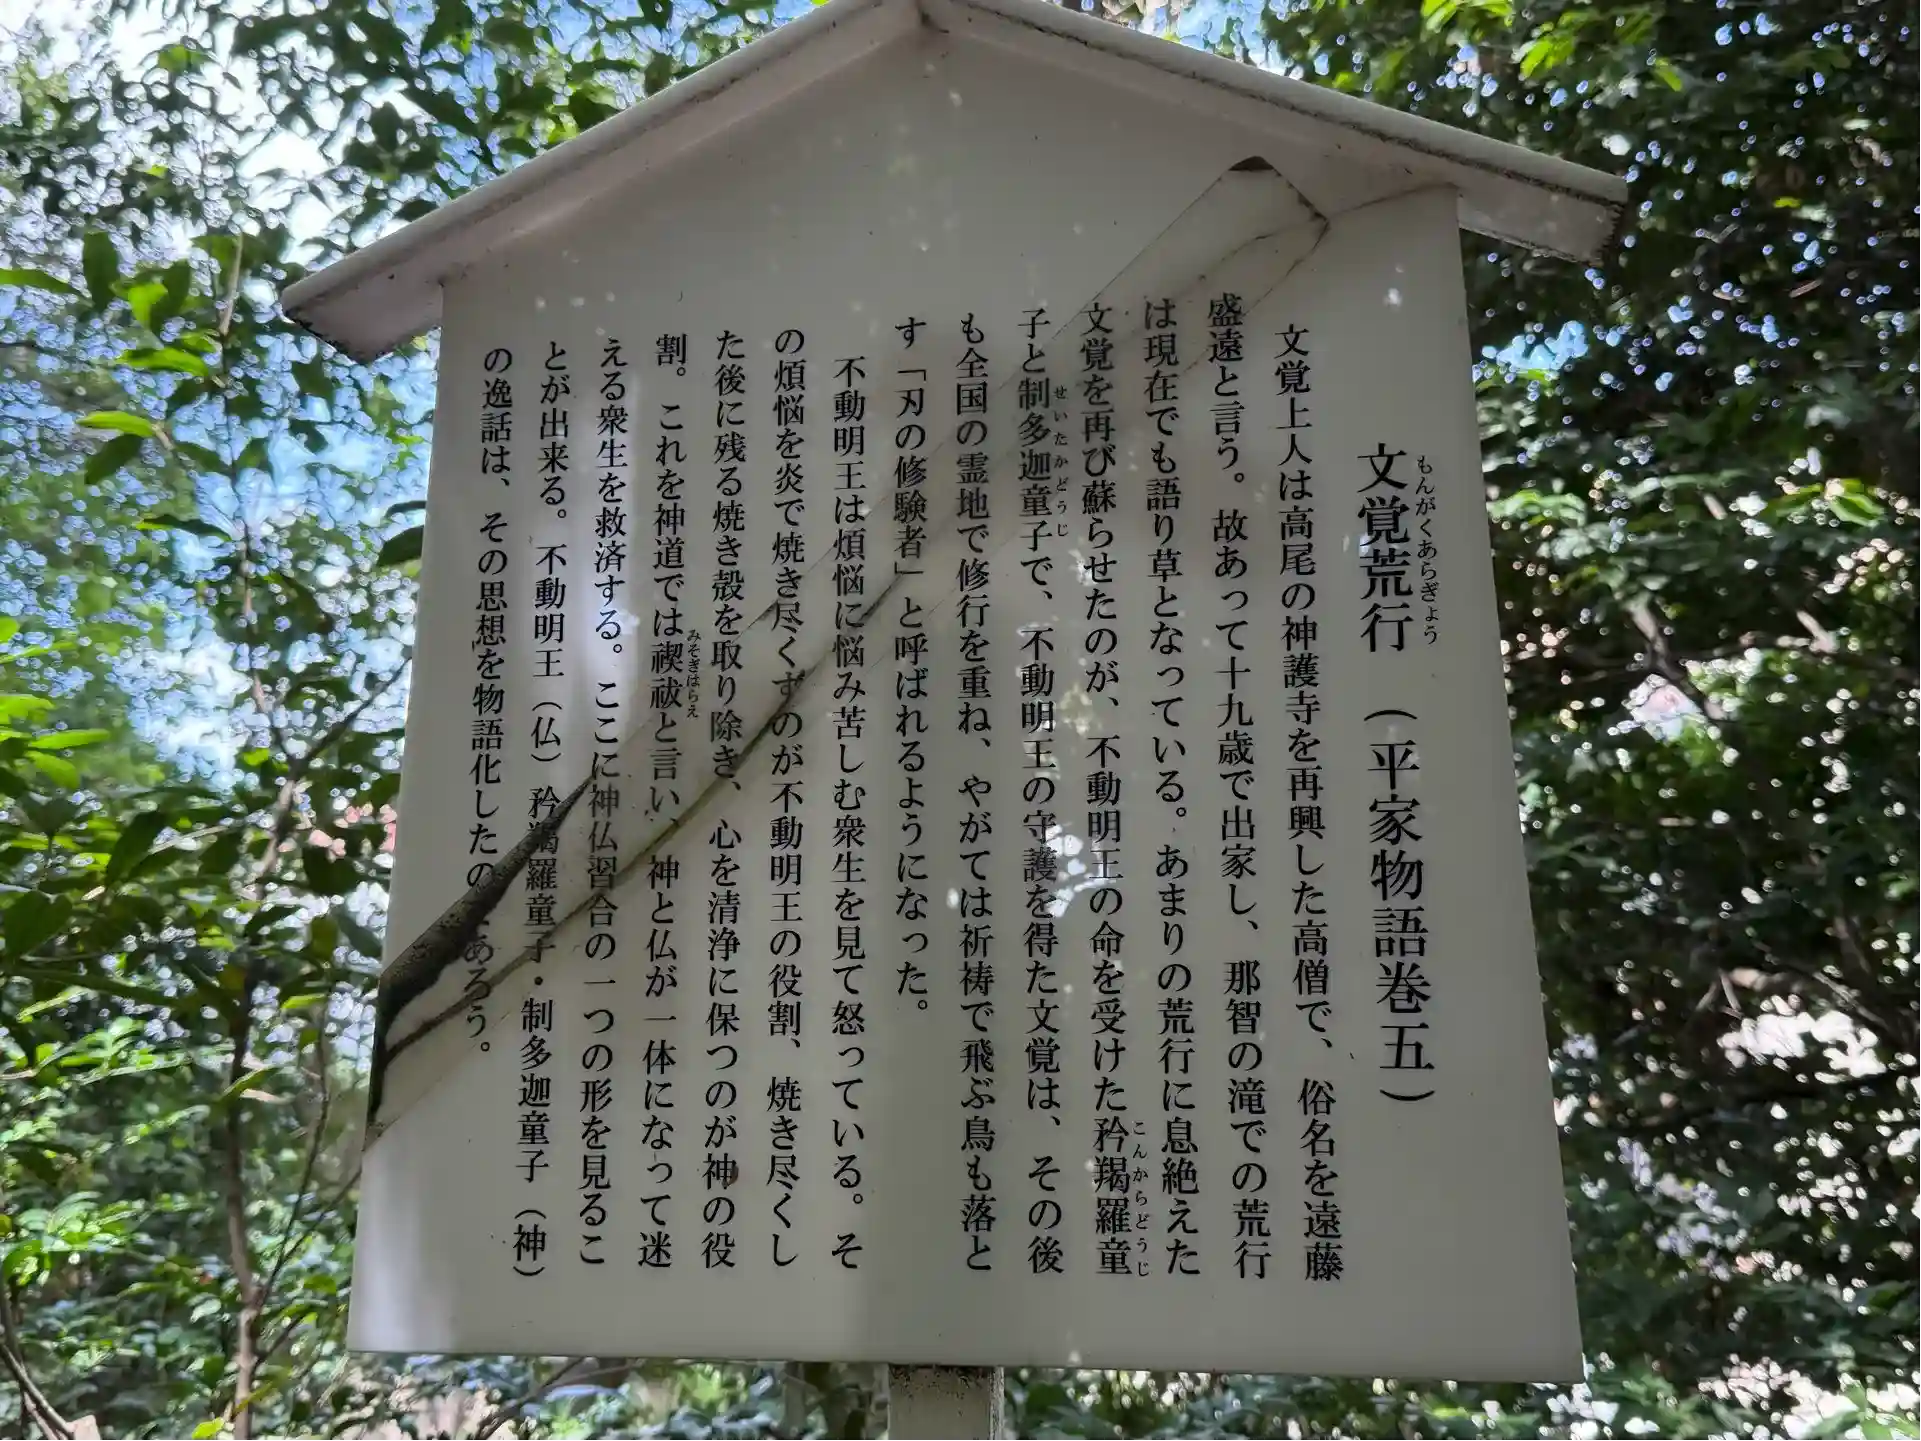 文覚荒行 (平家物語巻五)
もんがくあらぎょう
文覚上人は高尾の神護寺を再興した高僧で、俗名を遠藤
盛遠と言う。故あって十九歳で出家し、那智の滝での荒行
は現在でも語り草となっている。あまりの荒行に息絶えた
文覚を再び蘇らせたのが、不動明王の命を受けた矜羯羅童
こんからどうじ
子と制多迦童子で、不動明王の守護を得た文覚は、その後
せいたかどうじ
も全国の霊地で修行を重ね、やがては祈祷で飛ぶ鳥も落と
す「刃の修験者」と呼ばれるようになった。
不動明王は煩悩に悩み苦しむ衆生を見て怒っている。そ
の煩悩を炎で焼き尽くすのが不動明王の役割、焼き尽くし
た後に残る焼き殻を取り除き、心を清浄に保つのが神の役
割。これを神道では禊祓と言い、神と仏が一体になって迷
みそぎはらえ
える衆生を救済する。ここに神仏習合の一つの形を見るこ
とが出来る。不動明王(仏)矜羯羅童子・制多迦童子(神)
の逸話は、その思想を物語化したのであろう。